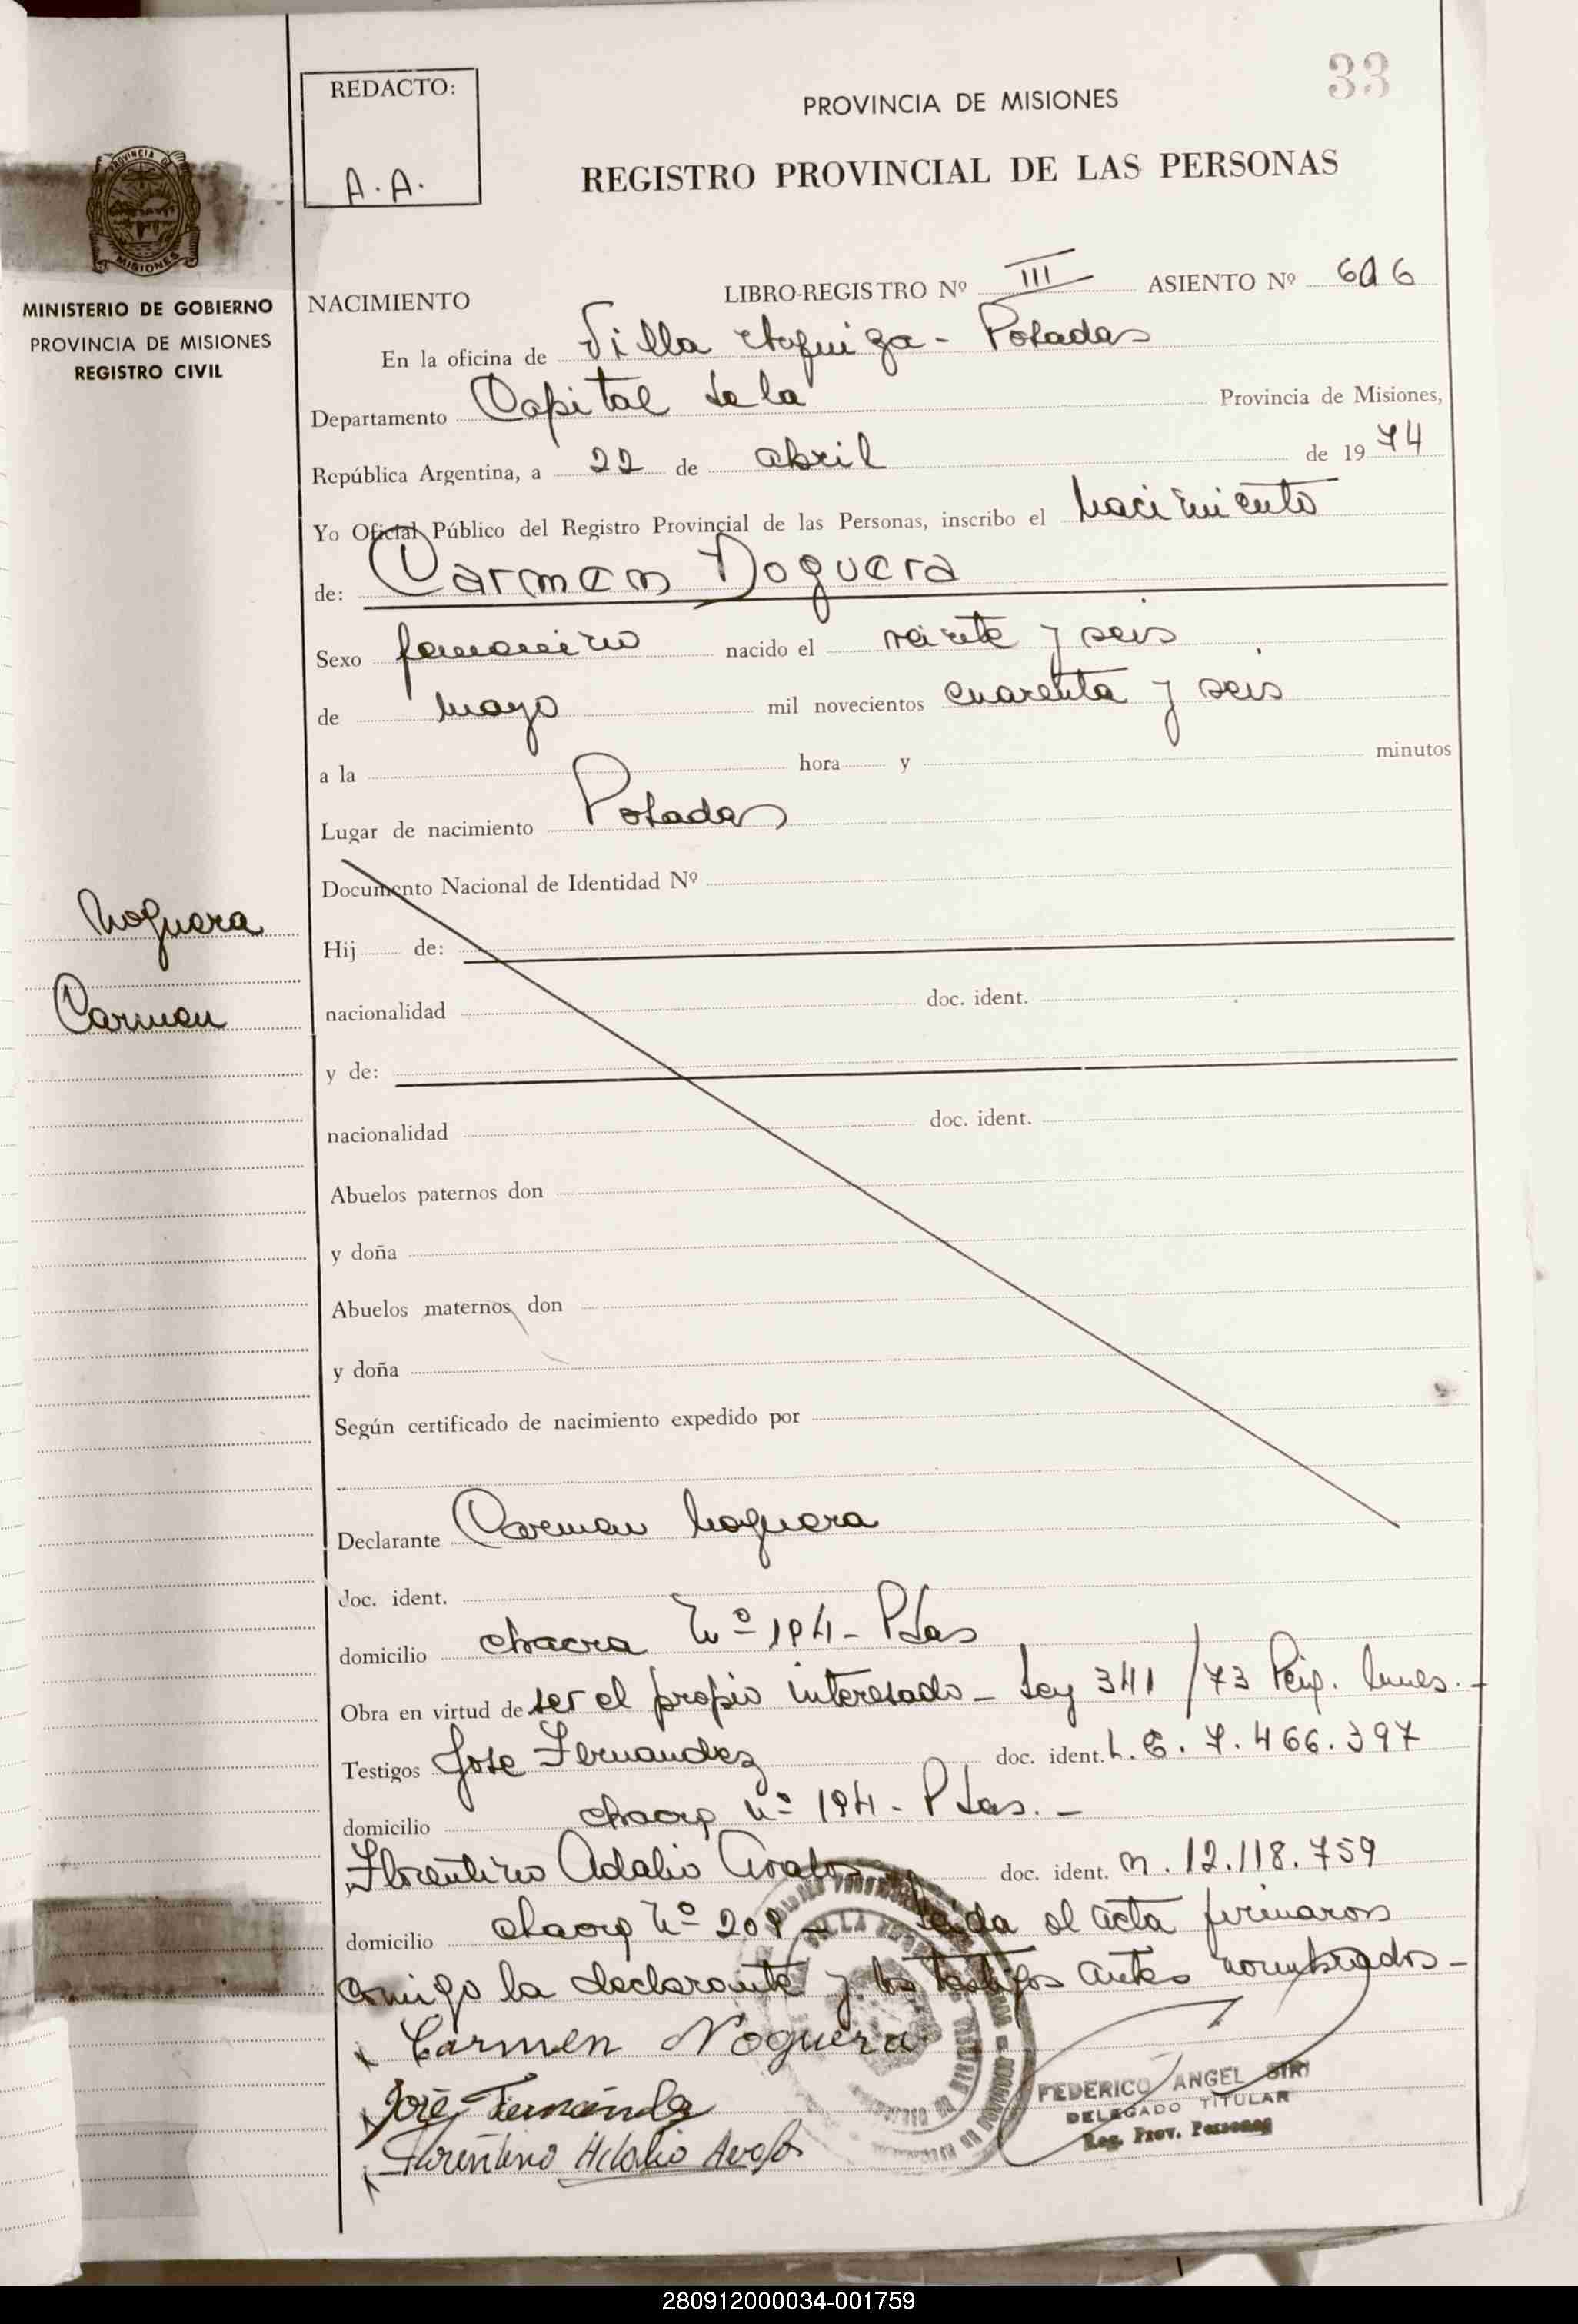 33
REDACTO:
A. A.
PROVINCIA DE MISIONES
REGISTRO PROVINCIAL DE LAS PERSONAS
PROVINCIA DE
MISIONES
MINISTERIO DE GOBIERNO
PROVINCIA DE MISIONES
REGISTRO CIVIL
NACIMIENTO LIBRO-REGISTRO Nº III ASIENTO Nº 616
En la oficina de Villa Urquiza - Posadas
Departamento Capital de la Provincia de Misiones,
República Argentina, a 22 de abril de 1974
Yo Oficial Público del Registro Provincial de las Personas, inscribo el nacimiento
de: Carmen Noguera
Sexo femenino nacido el veinte y seis
de mayo mil novecientos cuarenta y seis
a la hora y minutos
Lugar de nacimiento Posadas
Documento Nacional de Identidad Nº
Noguera
Carmen
Hij de:
nacionalidad doc. ident.
y de:
nacionalidad doc. ident.
Abuelos paternos don
y doña
Abuelos maternos don
y doña
Según certificado de nacimiento expedido por
Declarante Carmen Noguera
doc. ident.
domicilio chacra Nº 194 - Pdas
Obra en virtud de ser el propio interesado - Ley 341/73
Testigos Jose Fernandez doc. ident. L. E. 7.466.397
domicilio chacra nº 194 - Pdas. -
Florentino Adalio Avalos doc. ident. M. 12.118.759
domicilio chacra Nº 209 - Leida el acta firmaron
conmigo la declarante y los testigos antes nombrados -
Carmen Noguera
José Fernández
Florentino Adalio Avalos
FEDERICO ANGEL SIRI
DELEGADO TITULAR
Reg. Prov. Personas
280912000034-001759